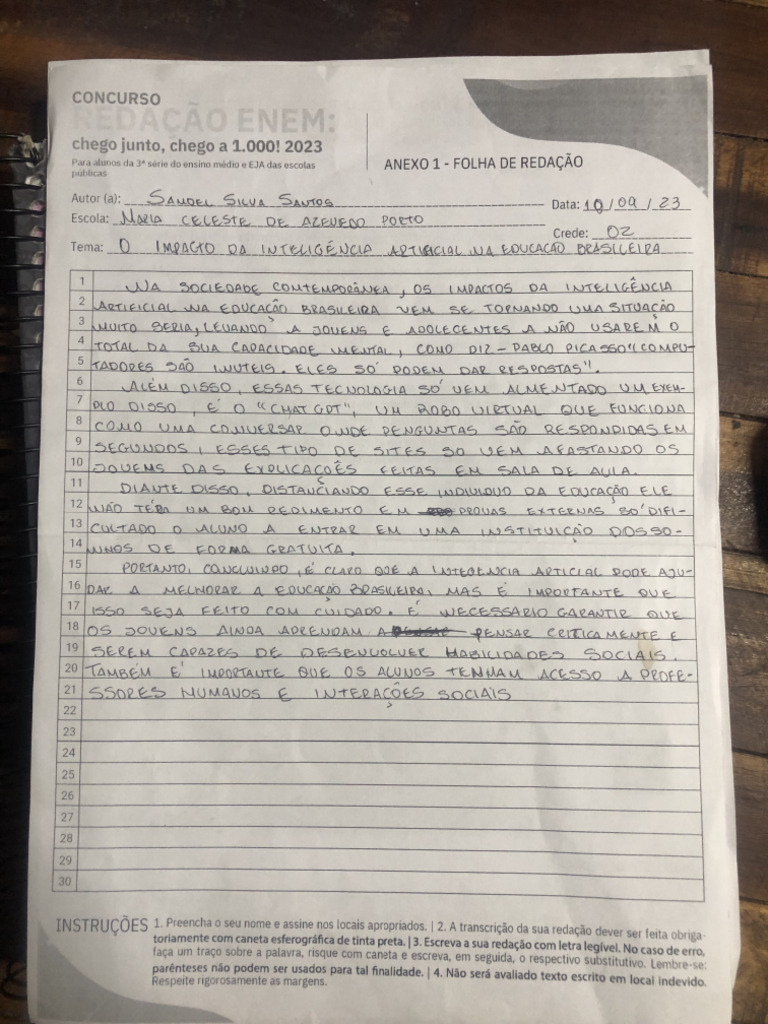 CONCURSO
REDAÇÃO ENEM:
chego junto, chego a 1.000! 2023
Para alunos da 3ª série do ensino médio e EJA das escolas
públicas
ANEXO 1 - FOLHA DE REDAÇÃO
Autor (a): SAMUEL SILVA SANTOS
Data: 10/09/23
Escola: MARIA CELESTE DE AZEVEDO PORTO
Crede: 02
Tema: O IMPACTO DA INTELIGÊNCIA ARTIFICIAL NA EDUCAÇÃO BRASILEIRA
1 NA SOCIEDADE CONTEMPORÂNEA, OS IMPACTOS DA INTELIGÊNCIA
2 ARTIFICIAL NA EDUCAÇÃO BRASILEIRA VEM SE TORNANDO UMA SITUAÇÃO
3 MUITO SERIA, LEVANDO A JOVENS E ADOLECENTES A NÃO USAREM O
4 TOTAL DA SUA CAPACIDADE MENTAL, COMO DIZ - PABLO PICASSO "COMPU-
5 TADORES SÃO INUTEIS. ELES SÓ PODEM DAR RESPOSTAS".
6 ALÉM DISSO, ESSAS TECNOLOGIA SÓ VEM ALMENTADO UM EXEM-
7 PLO DISSO, É O "CHAT GPT", UM ROBO VIRTUAL QUE FUNCIONA
8 COMO UMA CONVERSAR ONDE PENGUNTAS SÃO RESPONDIDAS EM
9 SEGUNDOS, ESSES TIPO DE SITES SO VEM AFASTANDO OS
10 JOVENS DAS EXPLICAÇOÊS FEITAS EM SALA DE AULA.
11 DIANTE DISSO, DISTANCIANDO ESSE INDIVIDUO DA EDUCAÇÃO ELE
12 NÃO TÉRA UM BOM REDIMENTO EM PROVAS EXTERNAS SÓ DIFI-
13 CULTADO O ALUNO A ENTRAR EM UMA INSTITUIÇÃO DOSSO-
14 NHOS DE FORMA GRATUITA.
15 PORTANTO, CONCLUINDO, É CLARO QUE A INTEGENCIA ARTICIAL PODE AJU-
16 DAR A MELHORAR A EDUCAÇÃO BRASILEIRO, MAS É IMPORTANTE QUE
17 ISSO SEJA FEITO COM CUIDADO. É NECESSÁRIO GARANTIR QUE
18 OS JOVENS AINDA APRENDAM A PENSAR CRITICAMENTE E
19 SEREM CAPAZES DE DESENVOLVER HABILIDADES SOCIAIS.
20 TAMBÉM É IMPORTANTE QUE OS ALUNOS TENHAM ACESSO A PROFE-
21 SSORES HUMANOS E INTERAÇÕES SOCIAIS
22
23
24
25
26
27
28
29
30
INSTRUÇÕES 1. Preencha o seu nome e assine nos locais apropriados. | 2. A transcrição da sua redação dever ser feita obriga-
toriamente com caneta esferográfica de tinta preta. | 3. Escreva a sua redação com letra legível. No caso de erro,
faça um traço sobre a palavra, risque com caneta e escreva, em seguida, o respectivo substitutivo. Lembre-se:
parênteses não podem ser usados para tal finalidade. | 4. Não será avaliado texto escrito em local indevido.
Respeite rigorosamente as margens.